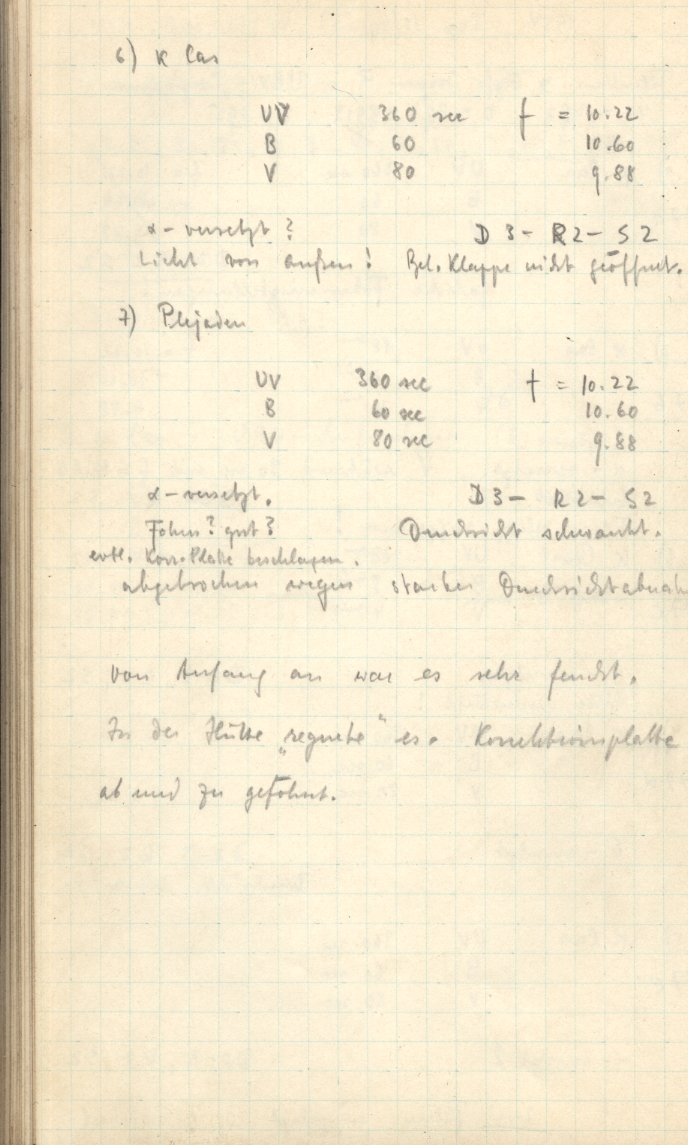 6) κ Cas
UV 360 sec f = 10.22
B 60 10.60
V 80 9.88
α-versetzt ? D3 - R2 - S2
Licht von außen! Bel. Klappe nicht geöffnet.
7) Plejaden
UV 360 sec f = 10.22
B 60 sec 10.60
V 80 sec 9.88
α-versetzt. D3 - R2 - S2
Fokus? gut? Durchsicht schwankt.
evtl. Korr. Platte beschlagen.
abgebrochen wegen starker Durchsichtabnah
Von Anfang an war es sehr feucht.
In der Hütte „regnete" es. Korrektionsplatte
ab und zu geföhnt.